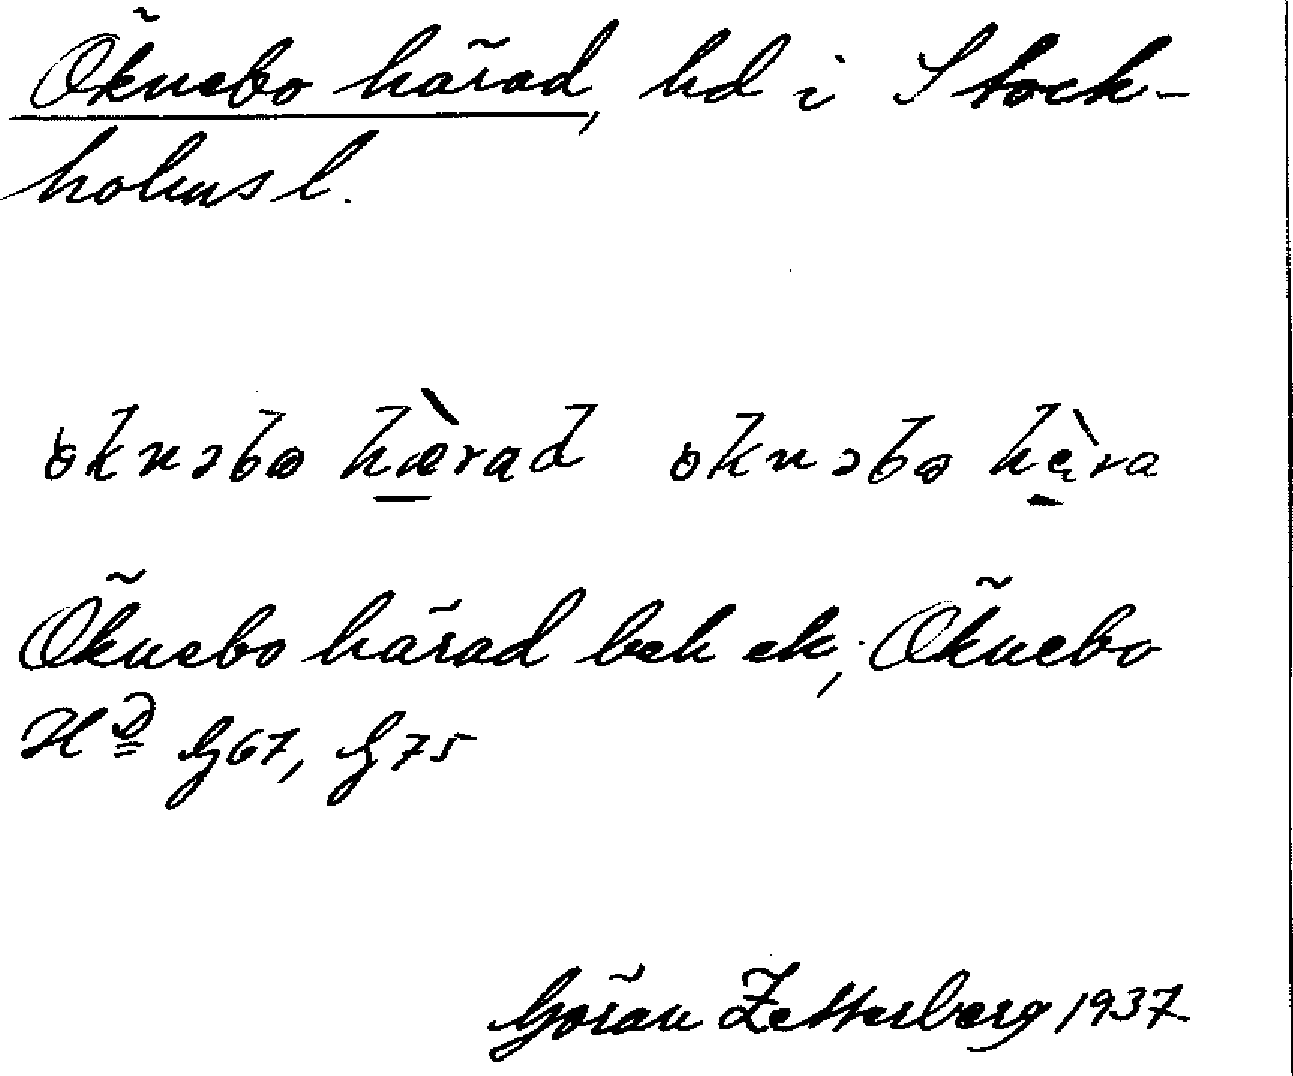 Öknebo härad, hd i Stock-
holms l.
öknəbo hæ̀rad öknəbo hę̀ra
Öknebo härad beh ek; Öknebo
Hd G67, G75
Göran Zetterberg 1937